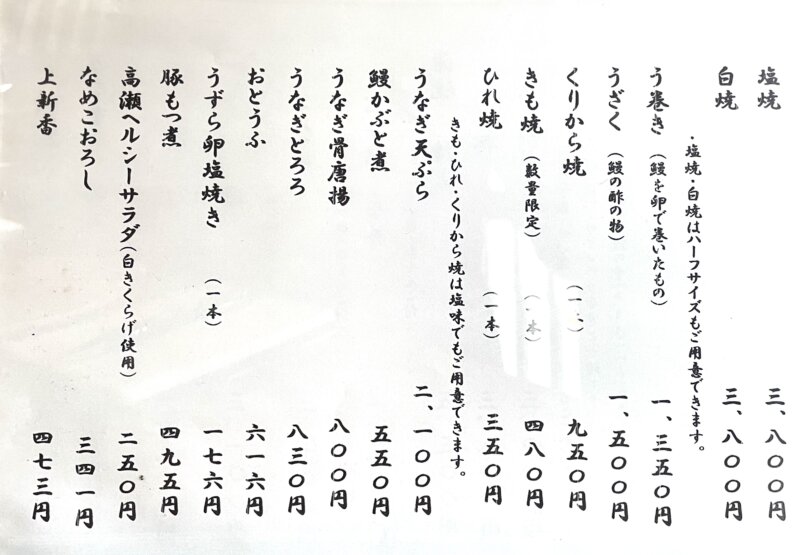 塩焼 三、八〇〇円
白焼 三、八〇〇円
・塩焼・白焼はハーフサイズもご用意できます。
う巻き（鰻を卵で巻いたもの） 一、三五〇円
うざく（鰻の酢の物） 一、五〇〇円
くりから焼（一本） 九五〇円
きも焼（数量限定）（一本） 四八〇円
ひれ焼（一本） 三五〇円
きも・ひれ・くりから焼は塩味でもご用意できます。
うなぎ天ぷら 二、一〇〇円
鰻かぶと煮 五五〇円
うなぎ骨唐揚 八〇〇円
うなぎとろろ 八三〇円
おとうふ 六一六円
うずら卵塩焼き（一本） 一七六円
豚もつ煮 四九五円
高瀬ヘルシーサラダ（白きくらげ使用） 二五〇円
なめこおろし 三四一円
上新香 四七三円